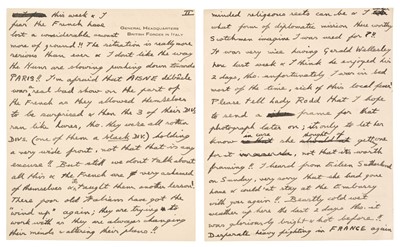 II
GENERAL HEADQUARTERS
BRITISH FORCES IN ITALY
this week & I
fear the French have
lost a considerable amount
more of ground!! The situation is really more
serious than ever & I don't like the way
the Huns are slowing pushing down towards
PARIS!! I'm afraid that AISNE débâcle
was a real bad show on the part of
the French as they allowed themselves
to be surprised & then the 3 of their DIVS
ran like hares, tho. they were all rotten
DIVS (one of them a black DIV) holding
a very wide front, not that that is any
excuse!! But still we don't talk about
all this & the French are very ashamed
of themselves & it's taught them another lesson!
These poor old Italians have got the
"wind up" again; they are trying to
work with as they are always changing
their minds & altering their plans!!
minded religious sects can be & I
what form of diplomatic mission this worthy
Scotchman imagines I was used for?!!
It was very nice having Gerald Wellesley
here last week & I think he enjoyed his
2 days, tho. unfortunately I was in bed
most of the time, sick of this local fever!
Please tell Lady Rodd that I hope
to send a frame for that
photograph later on; it's nice to let her
know
for it, not that it's worth
framing!! I heard from Eileen Sutherland
on Sunday, very sorry that she had gone
home & could not stay at the Embassy
with you again!! Beastly cold wet
weather up here the last 2 days tho. it
was gloriously bright & hot before!!
Desperate heavy fighting in FRANCE again